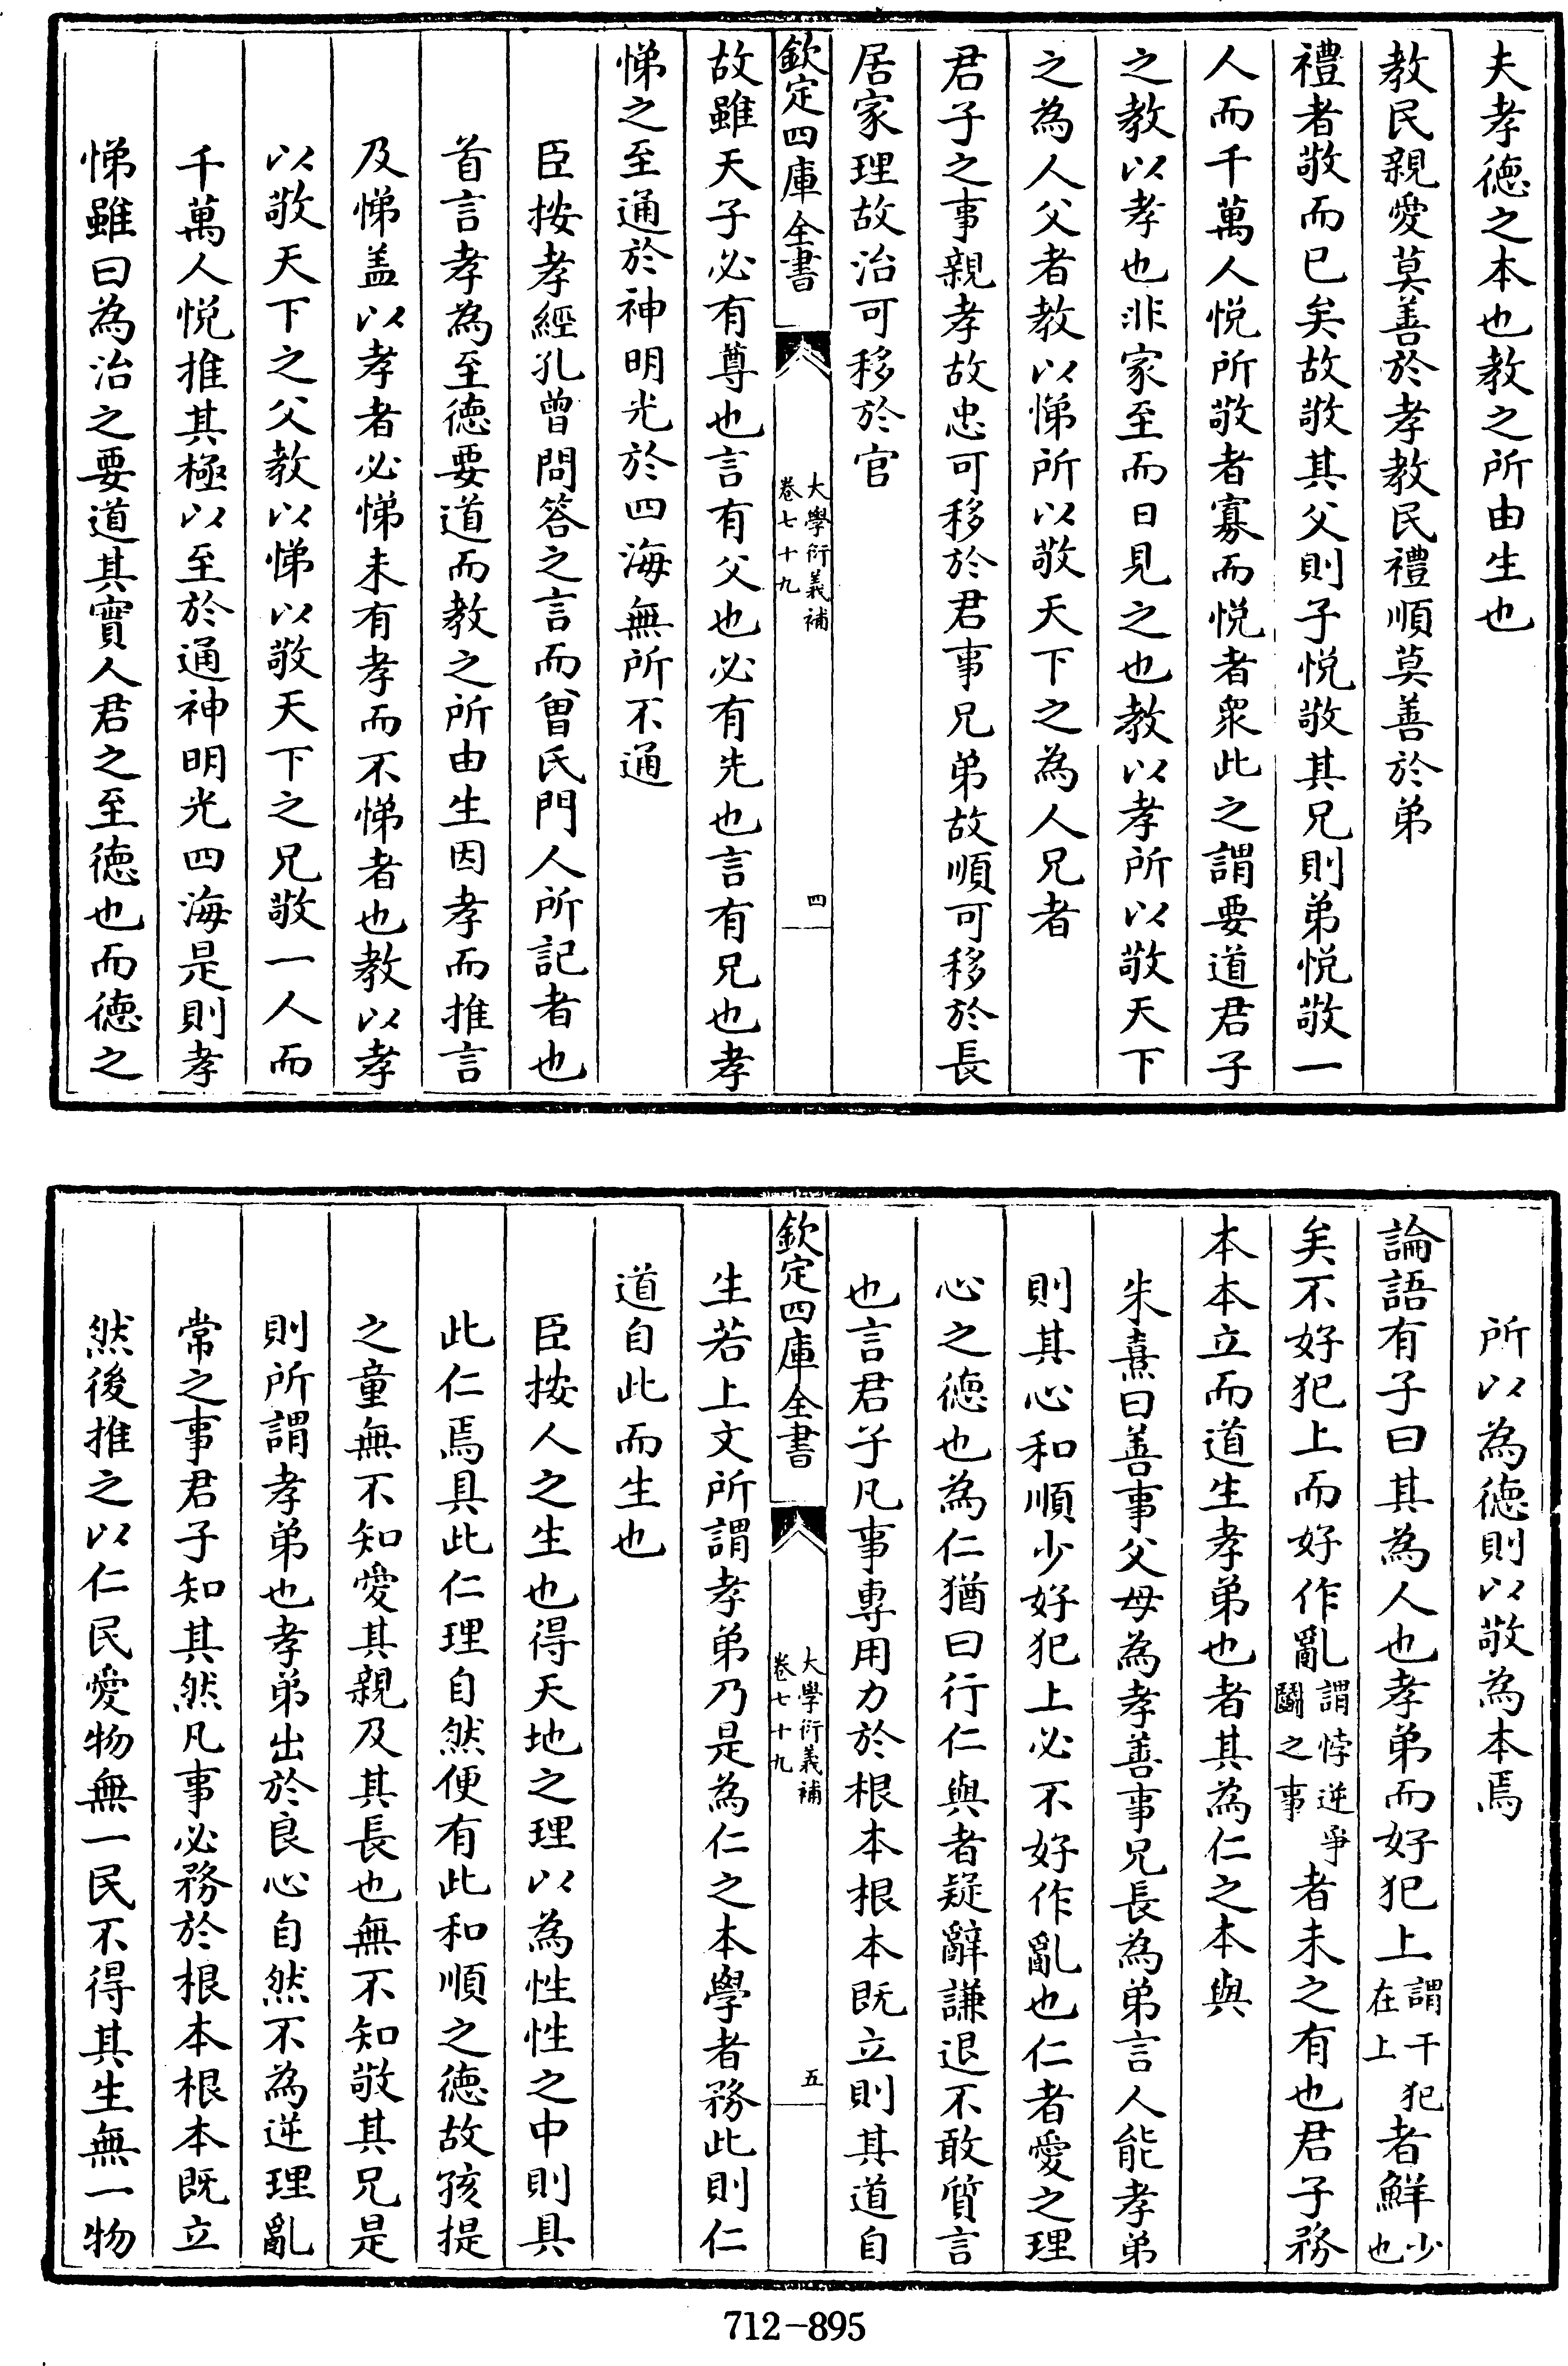 夫孝徳之本也教之所由生也
教民親愛莫善於孝教民禮順莫善於弟
禮者敬而已矣故敬其父則子悦敬其兄則弟悦敬一
人而千萬人悦所敬者寡而悦者衆此之謂要道君子
之教以孝也非家至而日見之也教以孝所以敬天下
之為人父者教以悌所以敬天下之為人兄者
君子之事親孝故忠可移於君事兄弟故順可移於長
居家理故治可移於官
欽定四庫全書
大學衍義補
卷七十九
四
故雖天子必有尊也言有父也必有先也言有兄也孝
悌之至通於神明光於四海無所不通
臣按孝經孔曾問答之言而曾氏門人所記者也
首言孝為至徳要道而教之所由生因孝而推言
及悌盖以孝者必悌未有孝而不悌者也教以孝
以敬天下之父教以悌以敬天下之兄敬一人而
千萬人悦推其極以至於通神明光四海是則孝
悌雖曰為治之要道其實人君之至徳也而徳之
所以為徳則以敬為本焉
論語有子曰其為人也孝弟而好犯上謂干犯在上者鮮少也
矣不好犯上而好作亂謂悖逆爭鬭之事者未之有也君子務
本本立而道生孝弟也者其為仁之本與
朱熹曰善事父母為孝善事兄長為弟言人能孝弟
則其心和順少好犯上必不好作亂也仁者愛之理
心之徳也為仁猶曰行仁與者疑辭謙退不敢質言
也言君子凡事專用力於根本根本既立則其道自
欽定四庫全書
大學衍義補
卷七十九
五
生若上文所謂孝弟乃是為仁之本學者務此則仁
道自此而生也
臣按人之生也得天地之理以為性性之中則具
此仁焉具此仁理自然便有此和順之徳故孩提
之童無不知愛其親及其長也無不知敬其兄是
則所謂孝弟也孝弟出於良心自然不為逆理亂
常之事君子知其然凡事必務於根本根本既立
然後推之以仁民愛物無一民不得其生無一物
712-895